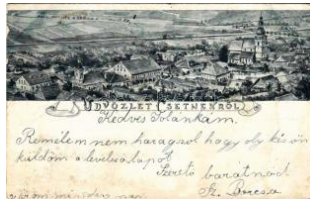 ÜDVÖZLET CSETNEKRŐL
Kedves Jolánkám.
Remélem nem haragszol hogy oly későn
küldöm a levelezőlapot
Szerető barátnőd